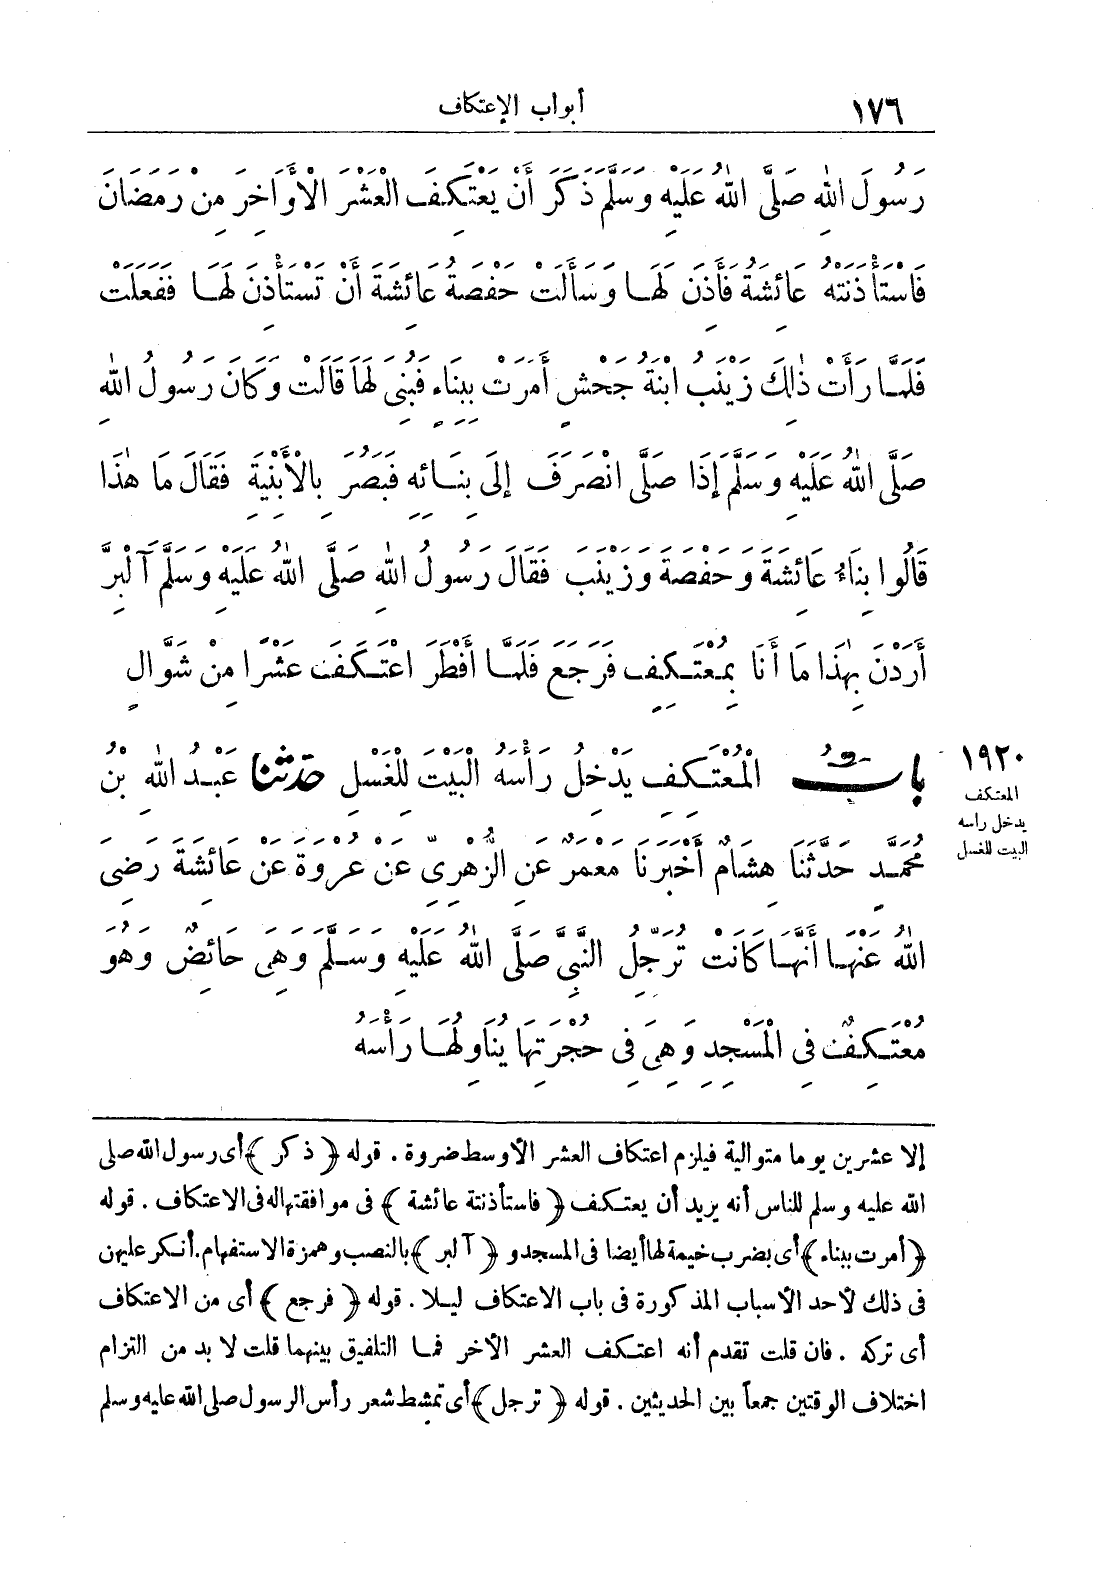 ١٧٦
أبواب الإعتكاف
رَسُولَ اللهِ صَلَّى اللهُ عَلَيْهِ وَسَلَّمَ ذَكَرَ أَنْ يَعْتَكِفَ الْعَشْرَ الْأَوَاخِرَ مِنْ رَمَضَانَ
فَاسْتَأْذَنَتْهُ عَائِشَةُ فَأَذِنَ لَهَا وَسَأَلَتْ حَفْصَةُ عَائِشَةَ أَنْ تَسْتَأْذِنَ لَهَا فَفَعَلَتْ
فَلَمَّا رَأَتْ ذٰلِكَ زَيْنَبُ ابْنَةُ جَحْشٍ أَمَرَتْ بِبِنَاءٍ فَبُنِيَ لَهَا قَالَتْ وَكَانَ رَسُولُ اللهِ
صَلَّى اللهُ عَلَيْهِ وَسَلَّمَ إِذَا صَلَّى انْصَرَفَ إِلَى بِنَائِهِ فَبَصُرَ بِالْأَبْنِيَةِ فَقَالَ مَا هٰذَا
قَالُوا بِنَاءُ عَائِشَةَ وَحَفْصَةَ وَزَيْنَبَ فَقَالَ رَسُولُ اللهِ صَلَّى اللهُ عَلَيْهِ وَسَلَّمَ آلْبِرَّ
أَرَدْنَ بِهٰذَا مَا أَنَا بِمُعْتَكِفٍ فَرَجَعَ فَلَمَّا أَفْطَرَ اعْتَكَفَ عَشْرًا مِنْ شَوَّالٍ
١٩٢٠
المعتكف
يدخل رأسه
البيت للغسل
بابٌ الْمُعْتَكِفِ يَدْخِلُ رَأْسَهُ الْبَيْتَ لِلْغَسْلِ حدثنا عَبْدُ اللهِ بْنُ
مُحَمَّدٍ حَدَّثَنَا هِشَامٌ أَخْبَرَنَا مَعْمَرٌ عَنِ الزُّهْرِيِّ عَنْ عُرْوَةَ عَنْ عَائِشَةَ رَضِيَ
اللهُ عَنْهَا أَنَّهَا كَانَتْ تُرَجِّلُ النَّبِيَّ صَلَّى اللهُ عَلَيْهِ وَسَلَّمَ وَهِيَ حَائِضٌ وَهُوَ
مُعْتَكِفٌ فِي الْمَسْجِدِ وَهِيَ فِي حُجْرَتِهَا يُنَاوِلُهَا رَأْسَهُ
إلا عشرين يوما متوالية فيلزم اعتكاف العشر الأوسط ضروة . قوله ﴿ ذكر ﴾ أى رسول الله صلى
الله عليه وسلم للناس أنه يريد أن يعتكف ﴿ فاستأذنتة عائشة ﴾ فى موافقتها له فى الاعتكاف . قوله
﴿ أمرت ببناء ﴾ أى بضرب خيمة لها أيضا فى المسجد و ﴿ آلبر ﴾ بالنصب وهمزة الاستفهام. أنكر عليهن
فى ذلك لأحد الأسباب المذكورة فى باب الاعتكاف ليلا . قوله ﴿ فرجع ﴾ أى من الاعتكاف
أى تركه . فان قلت تقدم أنه اعتكف العشر الأخر فما التلفيق بينهما قلت لا بد من التزام
اختلاف الوقتين جمعاً بين الحديثين . قوله ﴿ ترجل ﴾ أى تمشط شعر رأس الرسول صلى الله عليه وسلم